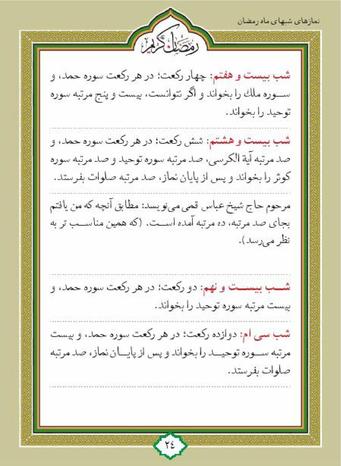 نمازهای شبهای ماه رمضان
رمضان کریم
شب بیست و هفتم: چهار رکعت؛ در هر رکعت سوره حمد، و
سوره ملك را بخواند و اگر نتوانست، بیست و پنج مرتبه سوره
توحید را بخواند.
شب بیست و هشتم: شش رکعت؛ در هر رکعت سوره حمد، و
صد مرتبه آیة الکرسی، صد مرتبه سوره توحید و صد مرتبه سوره
کوثر را بخواند و پس از پایان نماز، صد مرتبه صلوات بفرستد.
مرحوم حاج شیخ عباس قمی می‌نویسد: مطابق آنچه که من یافتم
بجای صد مرتبه، ده مرتبه آمده است. (که همین مناسب تر به
نظر می‌رسد).
شب بیست و نهم: دو رکعت؛ در هر رکعت سوره حمد، و
بیست مرتبه سوره توحید را بخواند.
شب سی ام: دوازده رکعت؛ در هر رکعت سوره حمد، و بیست
مرتبه سوره توحید را بخواند و پس از پایان نماز، صد مرتبه
صلوات بفرستد.
۲۴